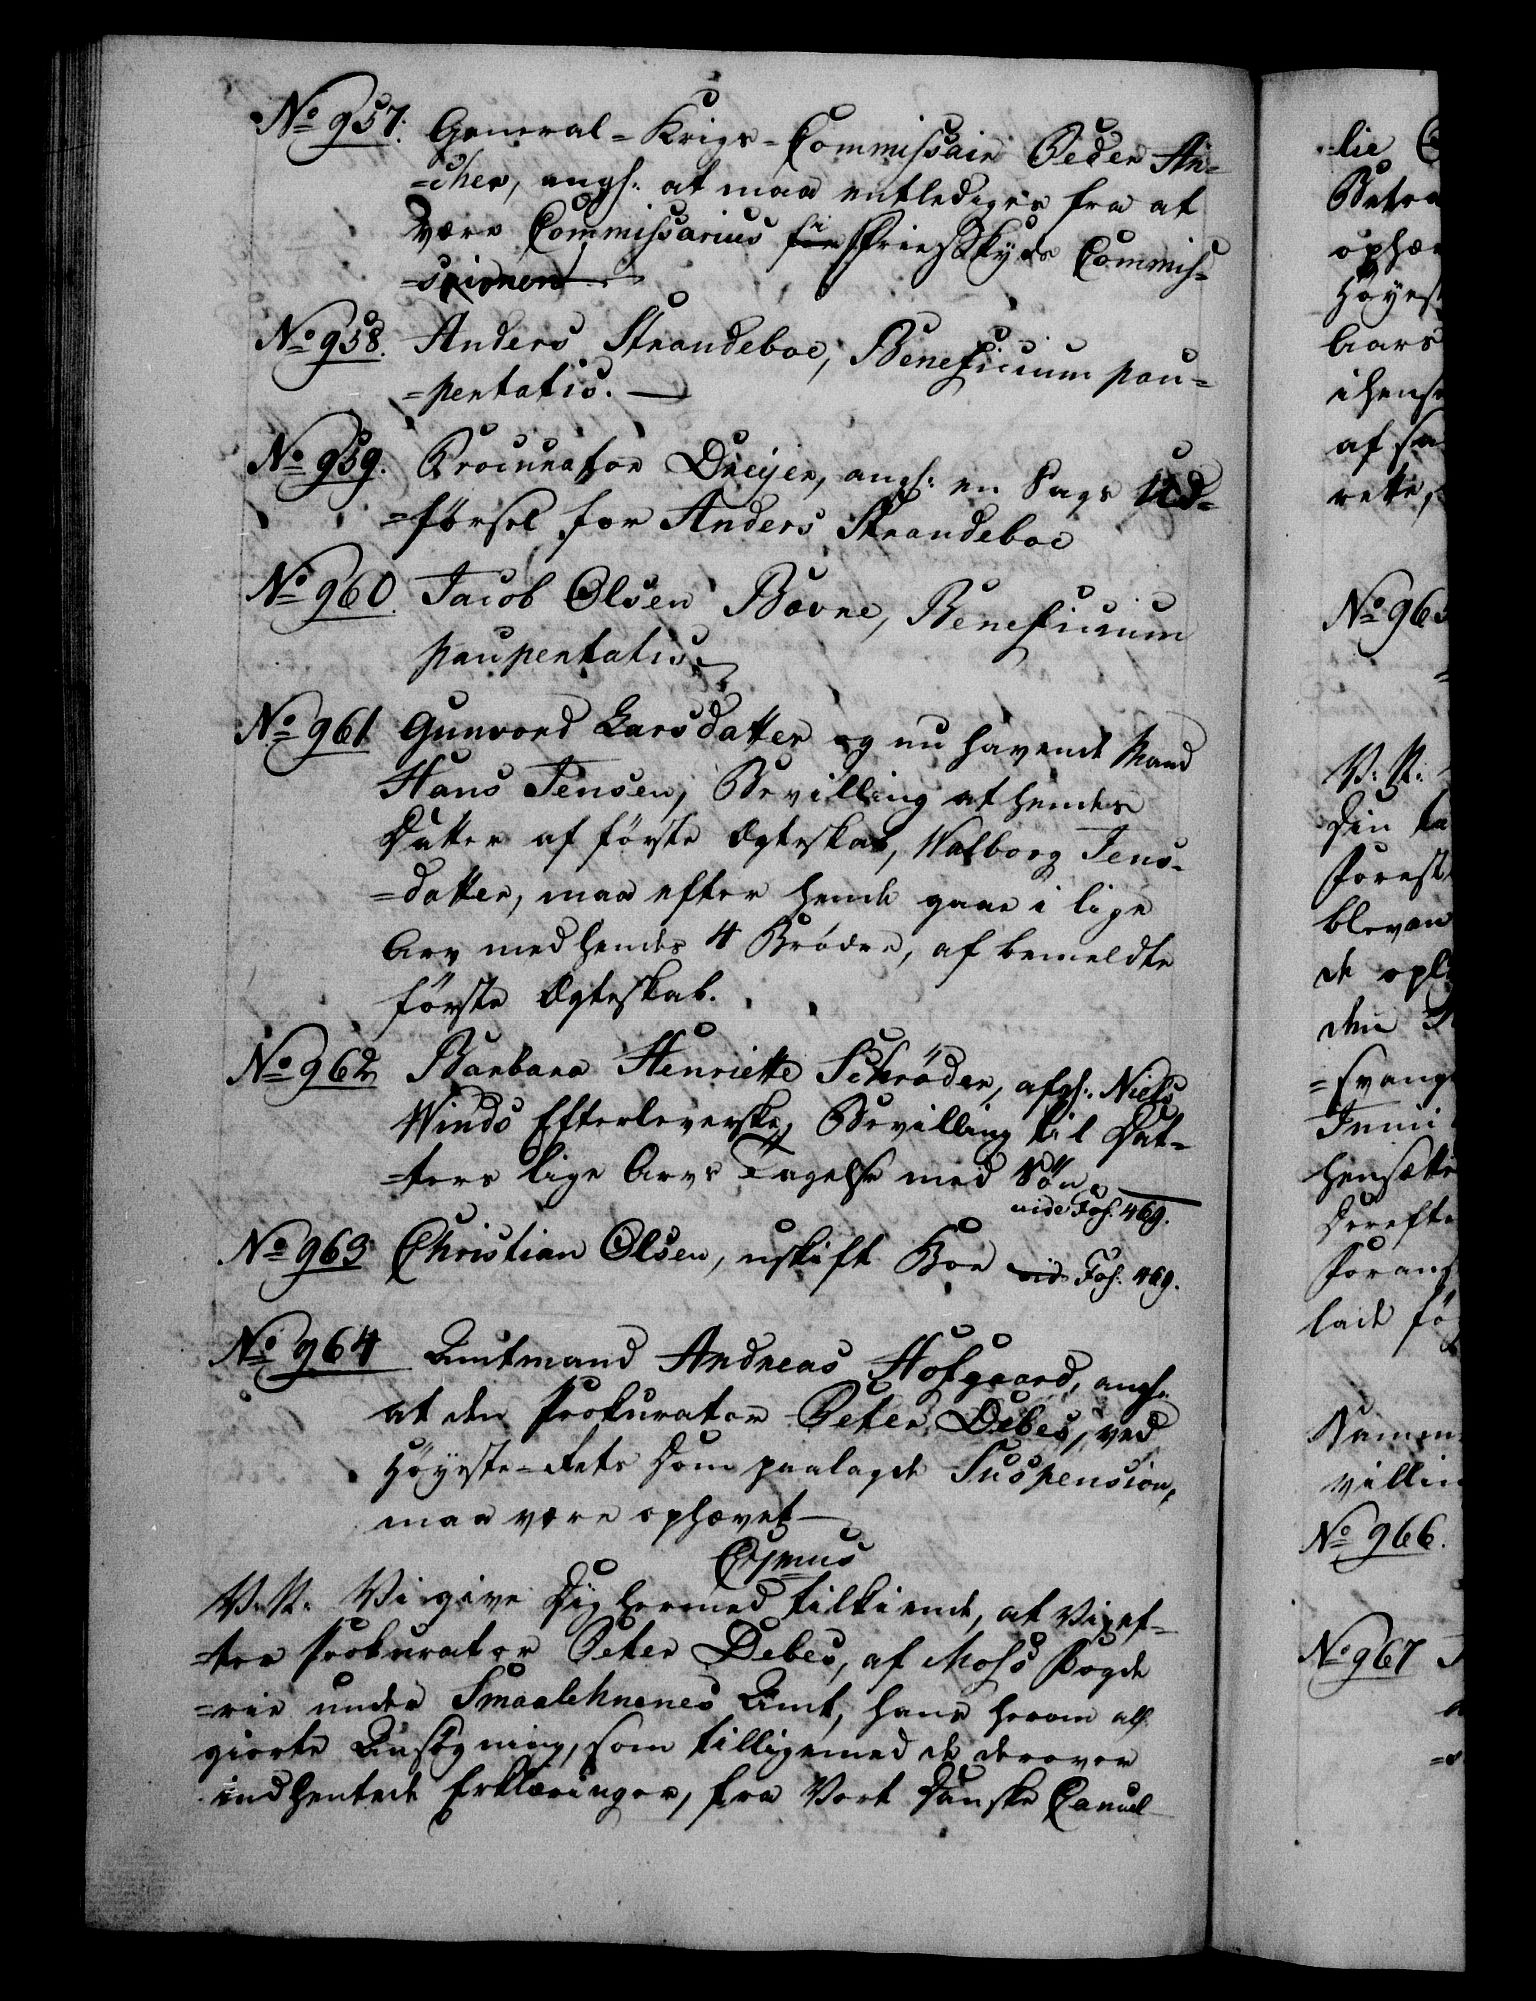 No 957. General-Krigs-Commissair Peder An-
=cher, angl. at maa entlediges fra at
være Commissarius i FriesSkyds Commis-
=sionen
No 958. Anders Strandeboe, Beneficium pau-
=pertatis.
No 959. Procurator Dreijer, angl. en Sags Ud-
=førsel for Anders Strandeboe
No 960. Jacob Olsen Bovne, Beneficium
paupertatis.
No 961 Gunvord Larsdatter og nu havende Mand
Hans Jensen, Bevilling at hendes
Datter af første Ægteskab, Walborg Jens-
=datter, maa efter hende gaae i lige
Arv med hendes 4 Brødre, af bemeldte
første Ægteskab.
No 962 Barbara Henriette Schrøder, afgl. Niels
Winds Efterleverske, Bevilling til Døt-
=tres lige Arvs Tagelse med Søn.
vide Fol. 469.
No 963 Christian Olsen, uskift Boe vide Fol. 469.
No 964 Amtmand Andreas Hofgaard, angl.
at den Prokurator Peter Debes, ved
Høyeste-Rets Dom paalagde Suspension,
maa være ophævet
V. A. Vi give Dig hermed tilkiende, at Vi, ef-
=ter Prokurator Peter Debes, af Moss Fogde
=rie under Smaalehnenes Amt, hans herom all.
giorte Ansøgning, som tilligemed de derover
indhentede Erklæringer, fra Vort Danske Cancel-
lie
Betæn
ophæv
Høyest
Aars
i hense
af sa
rette,
No 965
V. A.
Din
Forest
bleven
de opl
den
=svang
hensætte
Derefte
Foran
lade fø
villin
No 966.
No 967